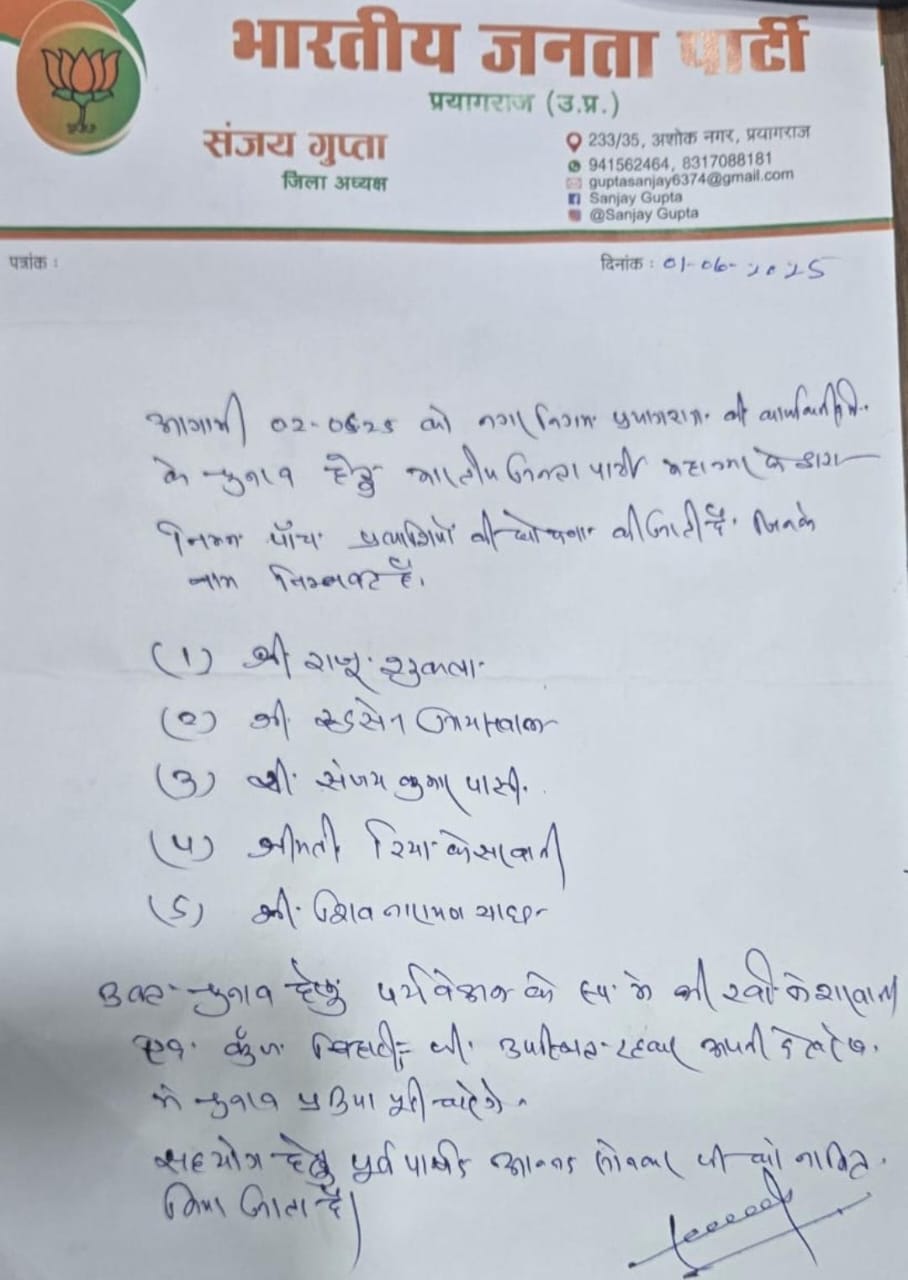 भारतीय जनता पार्टी
प्रयागराज (उ.प्र.)
संजय गुप्ता
जिला अध्यक्ष
233/35, अशोक नगर, प्रयागराज
941562464, 8317088181
guptasanjay6374@gmail.com
Sanjay Gupta
@Sanjay Gupta
पत्रांक :
दिनांक : 01-06-2025
आगामी 02-06-25 को नगर निगम प्रयागराज की कार्यकारिणी
के चुनाव हेतु भारतीय जनता पार्टी महानगर के द्वारा
निम्न पाँच प्रत्याशियों की घोषणा की जाती है. जिनके
नाम निम्नवत है.
(1) श्री राजू शुक्ला
(2) श्री रुद्रसेन जायसवाल
(3) श्री संजय कुमार पासी.
(4) श्रीमती रिया केसरवानी
(5) श्री शिव नारायण यादव
उक्त चुनाव हेतु पर्यवेक्षक के रूप में श्री रवी केशरवानी
एवं कुँज बिहारी जी उपस्थित रहकर अपनी देखरेख
में चुनाव प्रक्रिया पूरी
सहयोग हेतु पूर्व पार्षद आनन्द जी को नामित
किया जाता है।